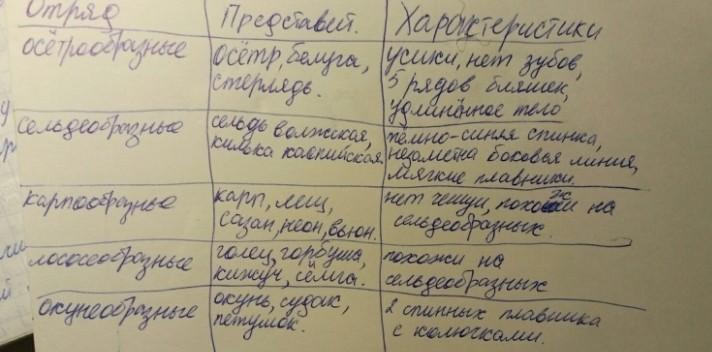 Отряд Представит. Характеристики
осётрообразные осётр, белуга, усики, нет зубов,
стерлядь. 5 рядов бляшек,
удлинённое тело
сельдеобразные сельдь волжская, тёмно-синяя спинка,
килька каспийская незаметна боковая линия,
мягкие плавники.
карпообразные карп, лещ, нет чешуи, похожи на
сазан, неон, вьюн. сельдеобразных.
лососеобразные голец, горбуша, похожи на
кижуч, сёмга. сельдеобразных
окунеобразные окунь, судак, 2 спинных плавника
петушок. с колючками.